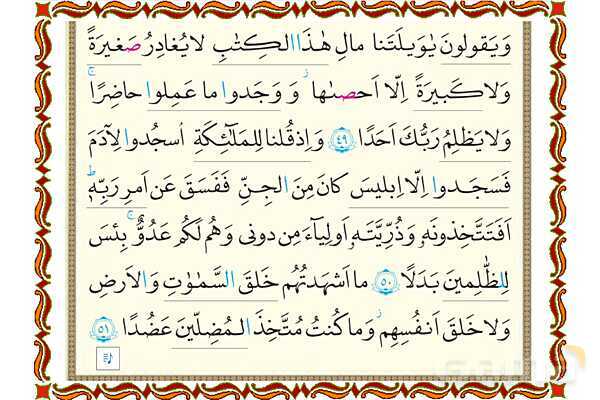 وَ يَقولونَ يٰوَيلَتَنا مالِ هٰذَا الكِتٰبِ لا يُغادِرُ صَغيرَةً
وَلا كَبيرَةً اِلّا اَحصىٰها ۚ وَ وَجَدوا ما عَمِلوا حاضِرًا ۗ
وَلا يَظلِمُ رَبُّكَ اَحَدًا ﴿٤٩﴾ وَ اِذ قُلنا لِلمَلٰئِكَةِ اسجُدوا لِاٰدَمَ
فَسَجَدوا اِلّا اِبليسَ كانَ مِنَ الجِنِّ فَفَسَقَ عَن اَمرِ رَبِّهٖ ۗ
اَفَتَتَّخِذونَهٗ وَ ذُرِّيَّتَهٗ اَولِياءَ مِن دونى وَ هُم لَكُم عَدُوٌّ ۚ بِئسَ
لِلظّٰلِمينَ بَدَلًا ﴿٥٠﴾ ما اَشهَدتُهُم خَلقَ السَّمٰوٰتِ وَ الاَرضِ
وَلا خَلقَ اَنفُسِهِم وَ ما كُنتُ مُتَّخِذَ المُضِلّينَ عَضُدًا ﴿٥١﴾